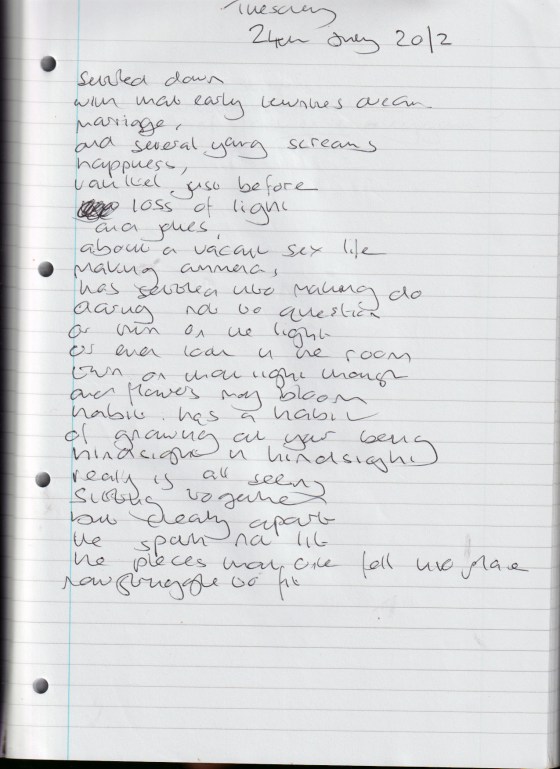 Tuesday
24th July 2012
Settled down
with that early twenties dream
marriage,
and several young screams
happiness,
vanished just before
loss of light
and jokes,
about a vacant sex life
making
has settled into making do
daring not to question
or turn on the light
or even look in the room
turn on that light though
and flowers may bloom
habit has a habit
of gnawing at your being
hindsight in hindsight
really is all seeing
Sitting together
but clearly apart
the spark not lit
the pieces that once fell into place
now struggle to fit